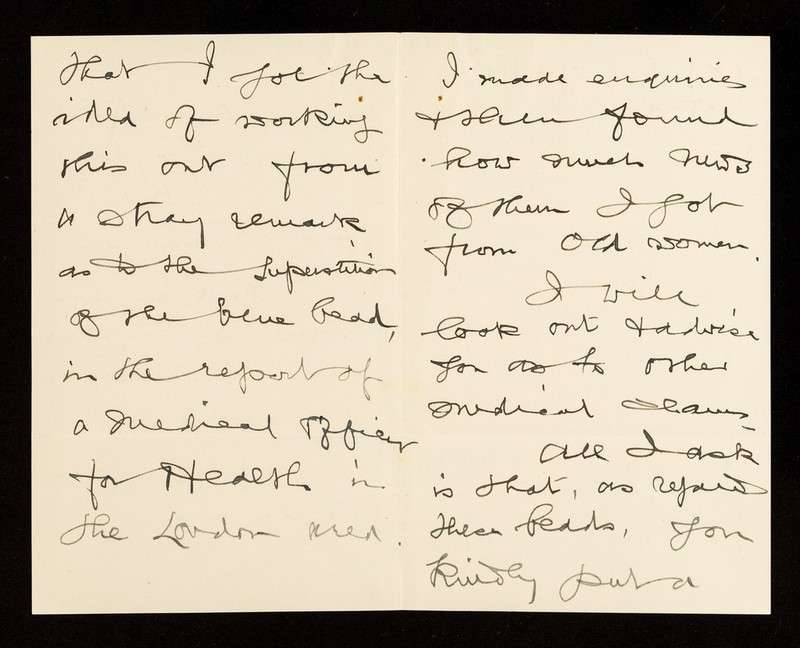 that I got the
idea of working
this out from
a stray remark
as to the superstition
of the blue bead,
in the report of
a medical officer
for Health in
the London area.
I made enquiries
& then found
how much news
of them I got
from old women.
I will
look out & advise
you as to other
medical
All I ask
is that, as regard
these beads, you
kindly put a